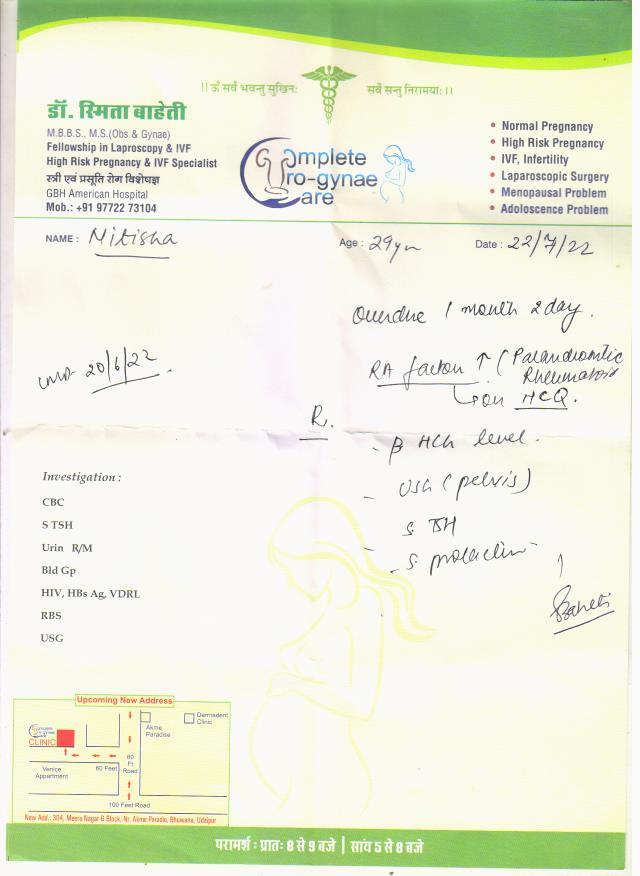 !! ॐ सर्वे भवन्तु सुखिनः सर्वे सन्तु निरामयाः।।
डॉ. स्मिता बाहेती
M.B.B.S., M.S.(Obs & Gynae)
Fellowship in Laproscopy & IVF
High Risk Pregnancy & IVF Specialist
स्त्री एवं प्रसूति रोग विशेषज्ञ
GBH American Hospital
Mob.: +91 97722 73104
Complete
Uro-gynae
Care
• Normal Pregnancy
• High Risk Pregnancy
• IVF, Infertility
• Laparoscopic Surgery
• Menopausal Problem
• Adoloscence Problem
NAME : Mitisha Age : 29yr Date : 22/7/22
Overdue 1 month 2 day.
LMP 20/6/22
RA factor ↑ (Palandromitic
Rheumatoid
on HCQ.
R.
- β HCG level.
- USG (pelvis)
S. TSH
- S. prolactin
Baheti
Investigation :
CBC
S TSH
Urin R/M
Bld Gp
HIV, HBs Ag, VDRL
RBS
USG
Upcoming New Address
Complete
Uro-gynae
Care
CLINIC
Akme
Paradise
Dermadent
Clinic
Venice
Appartment
60 Feet
80
Ft
Road
100 Feet Road
New Add.: 304, Meera Nagar-B Block, Nr. Akme Paradic, Bhuwana, Udaipur
परामर्श : प्रातः 8 से 9 बजे | सांय 5 से 8 बजे